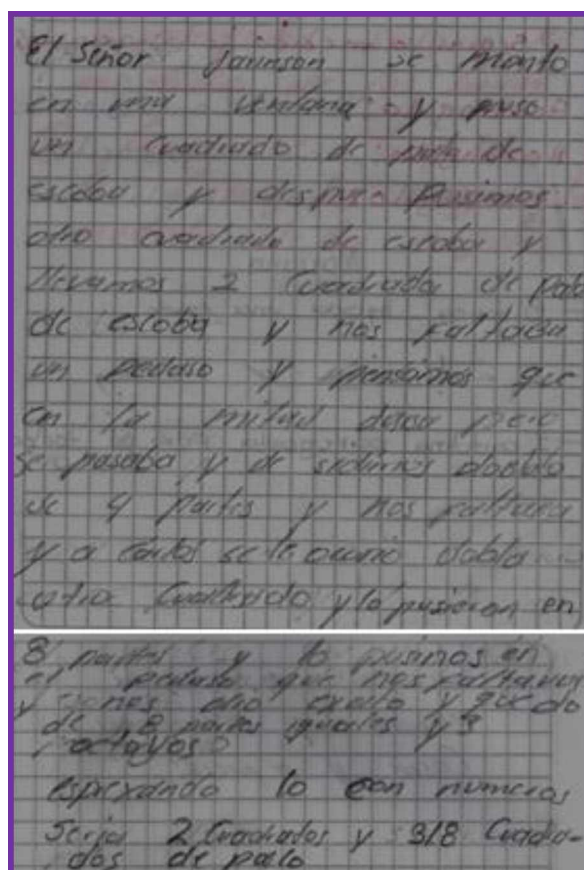 El Señor Jainnson se monto
en una ventana y puso
un cuadrado de palo de
escoba y despues pusimos
otro cuadrado de escoba y
llevamos 2 cuadrados de palo
de escoba y nos faltaba
un pedaso y pensamos que
en la mitad pero
se pasaba y de sidimos doblalo
de 4 partes y nos faltava
y a carlos se le ocurrio doblar
otro cuadrado y lo pusieron en
8 partes y lo pusimos en
el pedaso que nos faltava
y nos dio exalto y quedo
de 8 partes iguales y 3
octavos
espresando lo con numeros
Seria 2 Cuadrados y 3/8 Cuadra-
dos de palo